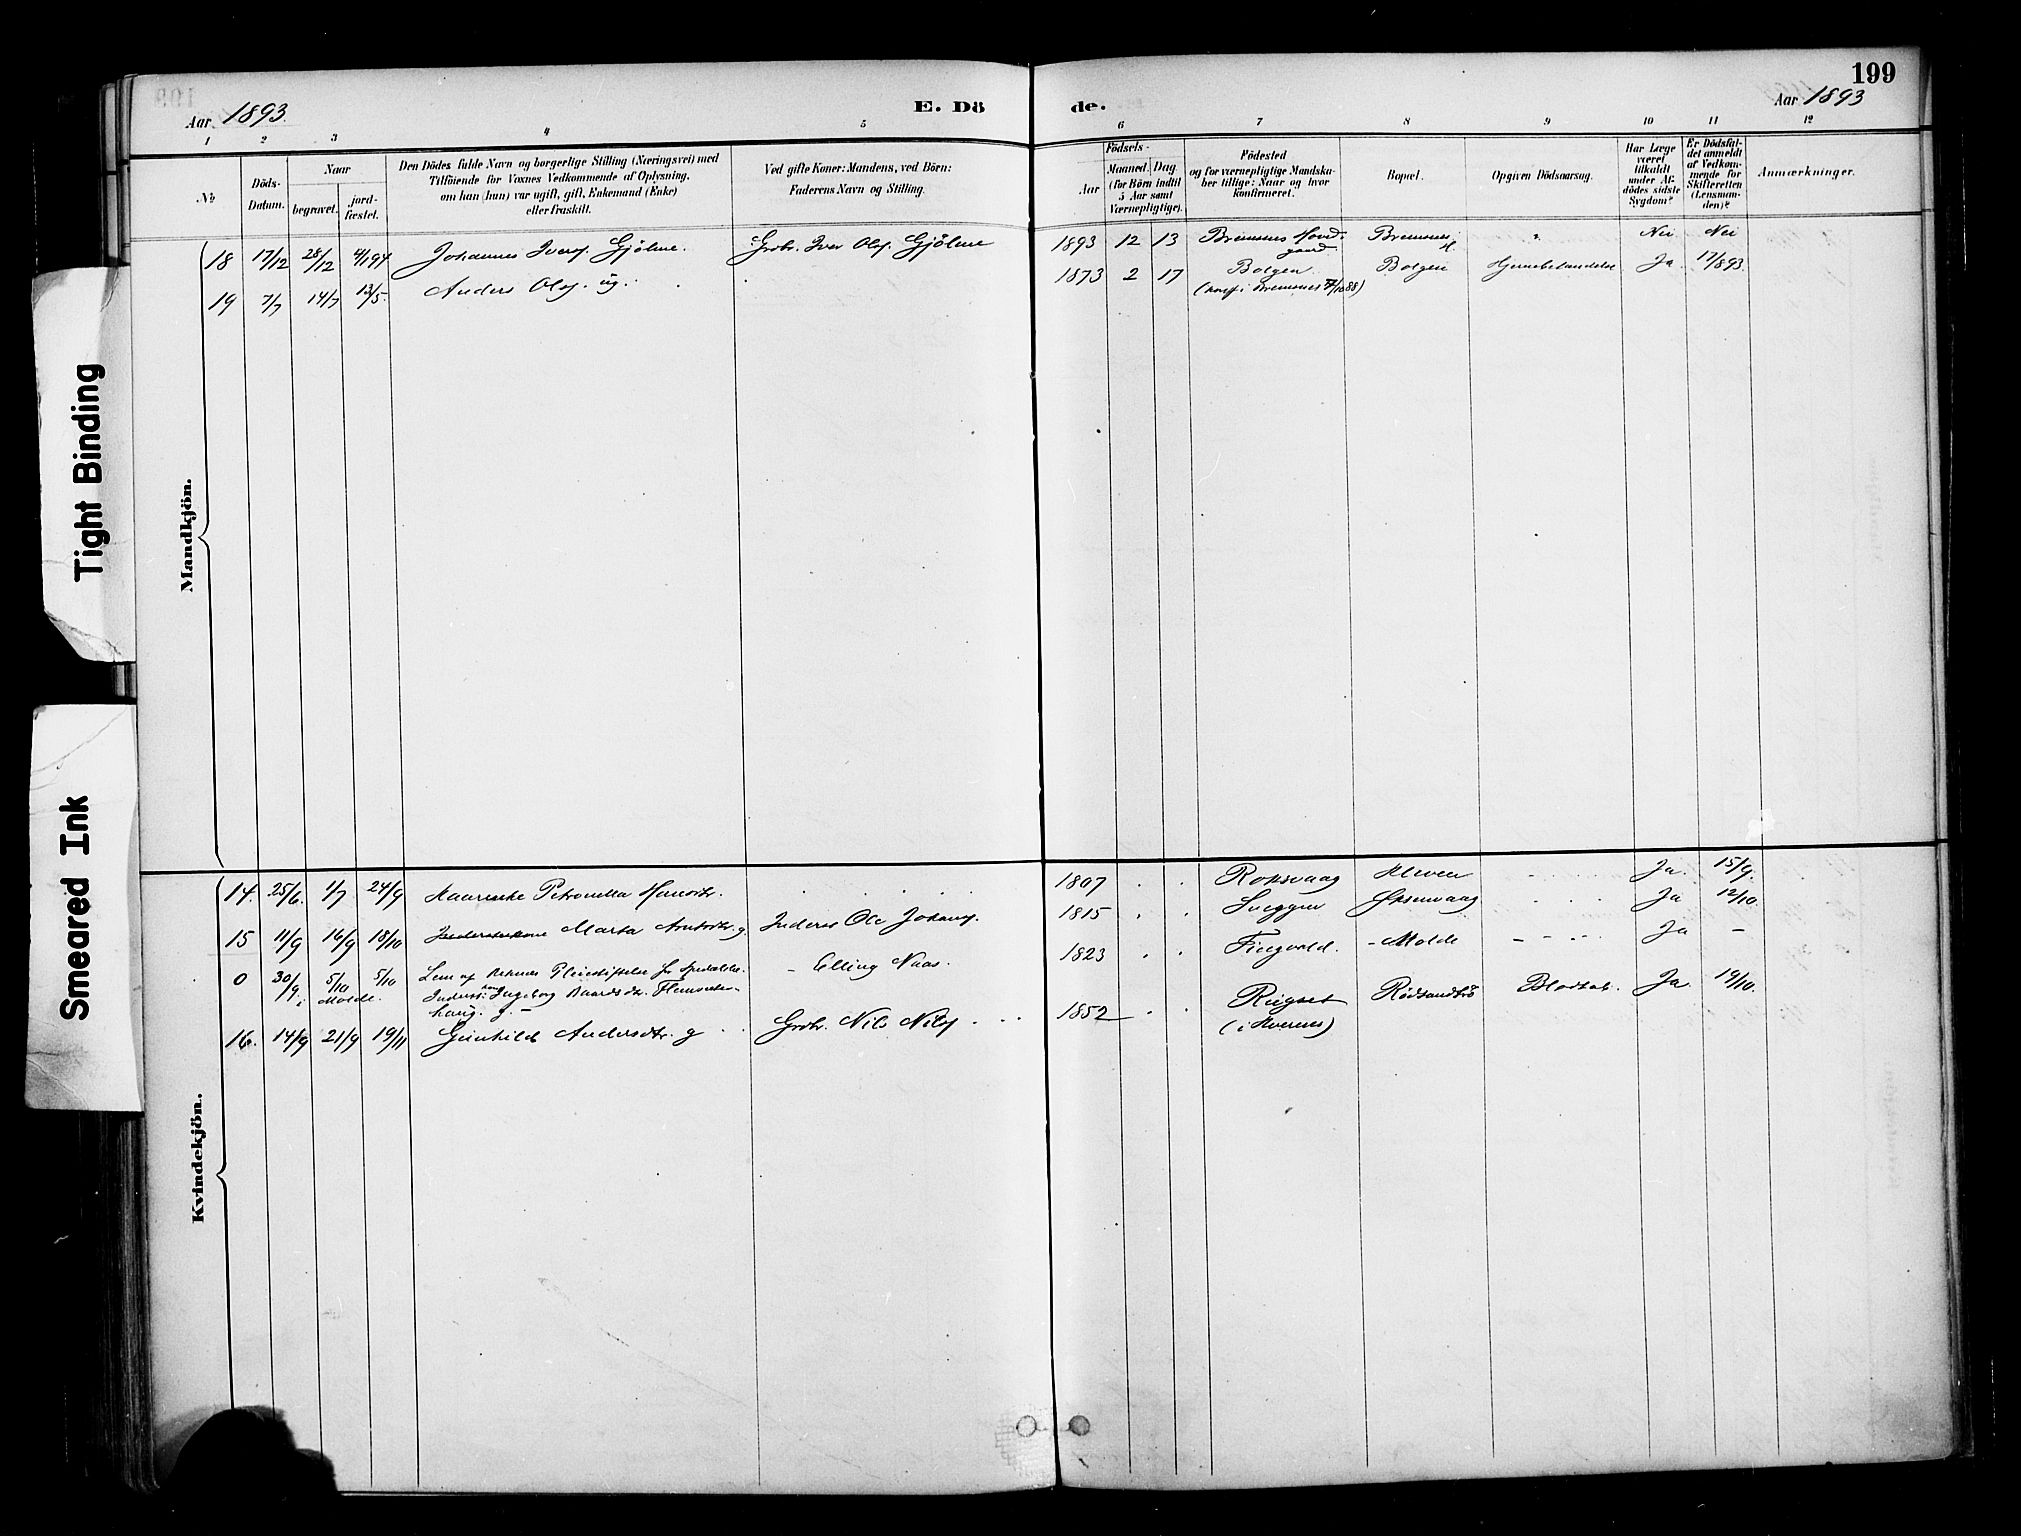 199
Aar 1893.
E. Dö
de.
Aar 1893
1 2 3 4 5 6 7 8 9 10 11 12
№
Döds-
Datum.
Naar
begravet.
jord-
fæstet.
Den Dödes fulde Navn og borgerlige Stilling (Næringsvei) med
Tilföiende for Voxnes Vedkommende af Oplysning,
om han (hun) var ugift, gift, Enkemand (Enke)
eller fraskilt.
Ved gifte Koner: Mandens, ved Börn:
Faderens Navn og Stilling.
Födsels-
Aar
Maaned.
Dag.
(for Börn indtil
5 Aar samt
Værnepligtige).
Födested
og for værnepligtige Mandska-
ber tillige: Naar og hvor
konfirmeret.
Bopæl.
Opgiven Dödsaarsag.
Har Læge
været
tilkaldt
under Af-
dödes sidste
Sygdom?
Er Dödsfal-
det anmeldt
af Vedkom-
mende for
Skifteretten
(Lensman-
den)?
Anmærkninger.
18 17/12 28/12 4/1 94 Johannes Ivers. Gjölme. Grbr. Iver Ols. Gjölme 1893 12 13 Bremsnes Hovd- Bremsnes Nei Nei
gaard
19 7/7 14/7 13/5 Anders Ols. ug. 1873 2 17 Bolgen Bolgen Ja 17/8 93.
(konf. i Bremsnes /10 88)
Mandkjön.
Tight Binding
14. 25/6. 1/7 24/9 Petronella 1807 Roksvaag Kleven Ja. 15/9.
15 11/9 16/9 18/10 Marta g. Inderst Ole Johans. 1815 Ja 12/10.
0 30/9 5/10 5/10 Lem af Reknes Pleiestiftelse for Spedalske. Elling Naas. 1823 Molde Ja -
i Molde. Ingeborg Baardsdtr.
haug. g.
16. 14/9 21/9 19/11 Gunhild Andersdtr. g Grbr. Nils Nils. 1852 Ja. 19/10.
(i Kvernes)
Kvindekjön.
Smeared Ink